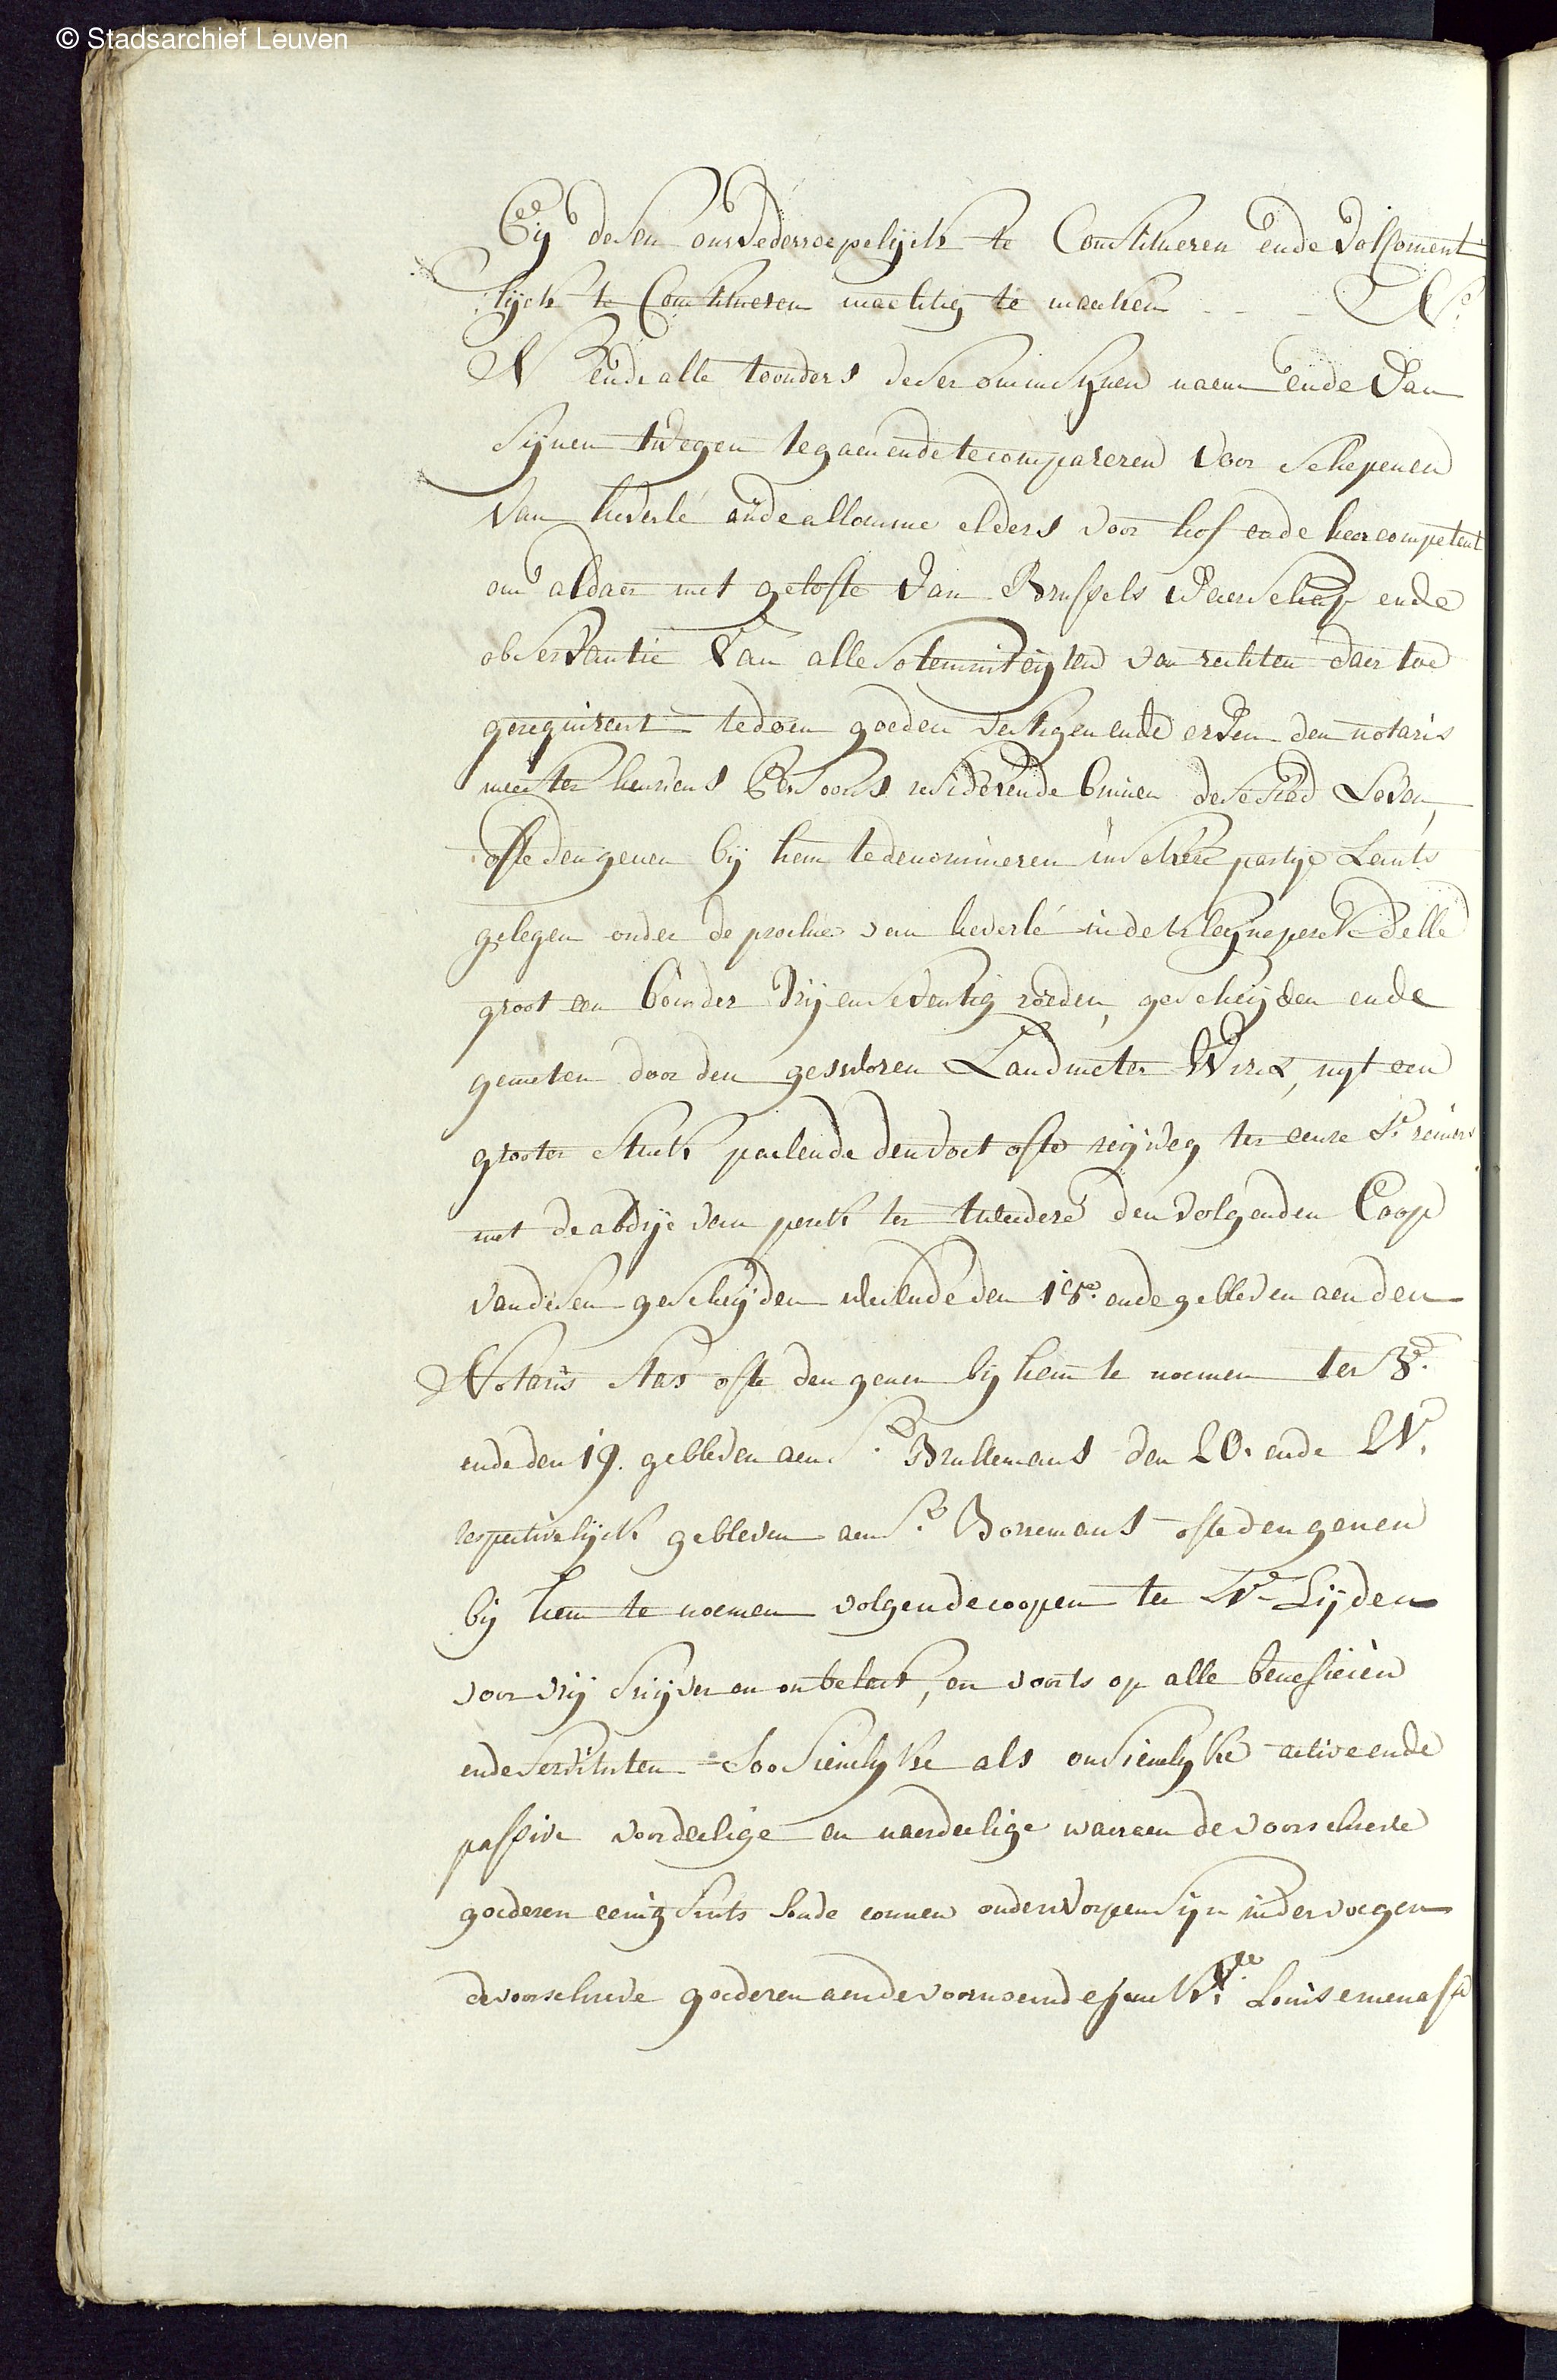 © Stadsarchief Leuven
Bij desen onwederroepelyck te Constitueren ende volcoment
lyck te Constitueren machtig te maeken - - - N:
N ende alle toonders deser om in synen naem ende van
sijnen twegen te gaen ende te compareren voor schepenen
van heverlé ende allomme elders voor hof ende heer competent
om aldaer met gelofte van Brussels waerschap ende
observantie van alle solemniteyten van rechten daer toe
gerequireert te doen goeden vestigen ende erven den notaris
meester henricus Persoons resideerende binnen dese stad Loven,
ofte den genen bij hem te denomineren in seker partye Lants
gelegen onder de prochie van heverlé in de kleyne perck delle
groot een bonder dry en seventig roeden, gescheyden ende
gemeten door den gesworen Landmeter Wirix, uyt een
grooter stuck paelende den voet ofte reijweg ter eenre Sr reniers
met de abdye van perck ter tweedere den volgenden Coop
van desen gescheyden weesende den 18e. ende gebleven aen den
Notaris Stas ofte den genen bij hem te noemen ter 3e.
ende den 19. gebleven aen Sr. Brullemans den 20. ende 21.
respectivelyck gebleven aen Sr. Borremans ofte den genen
bij hem te noemen volgende coopen ter 4e Zyden
voor vrij suyver en onbelast, en voorts op alle beneficien
ende servituten soo sienelyke als onsienelyke active ende
passive voordeelige en naerdeelige waer aen de voorschreve
goederen eenig sints soude connen onderworpen syn in der voegen
de voorschreve goederen aen de voornoemde Louise